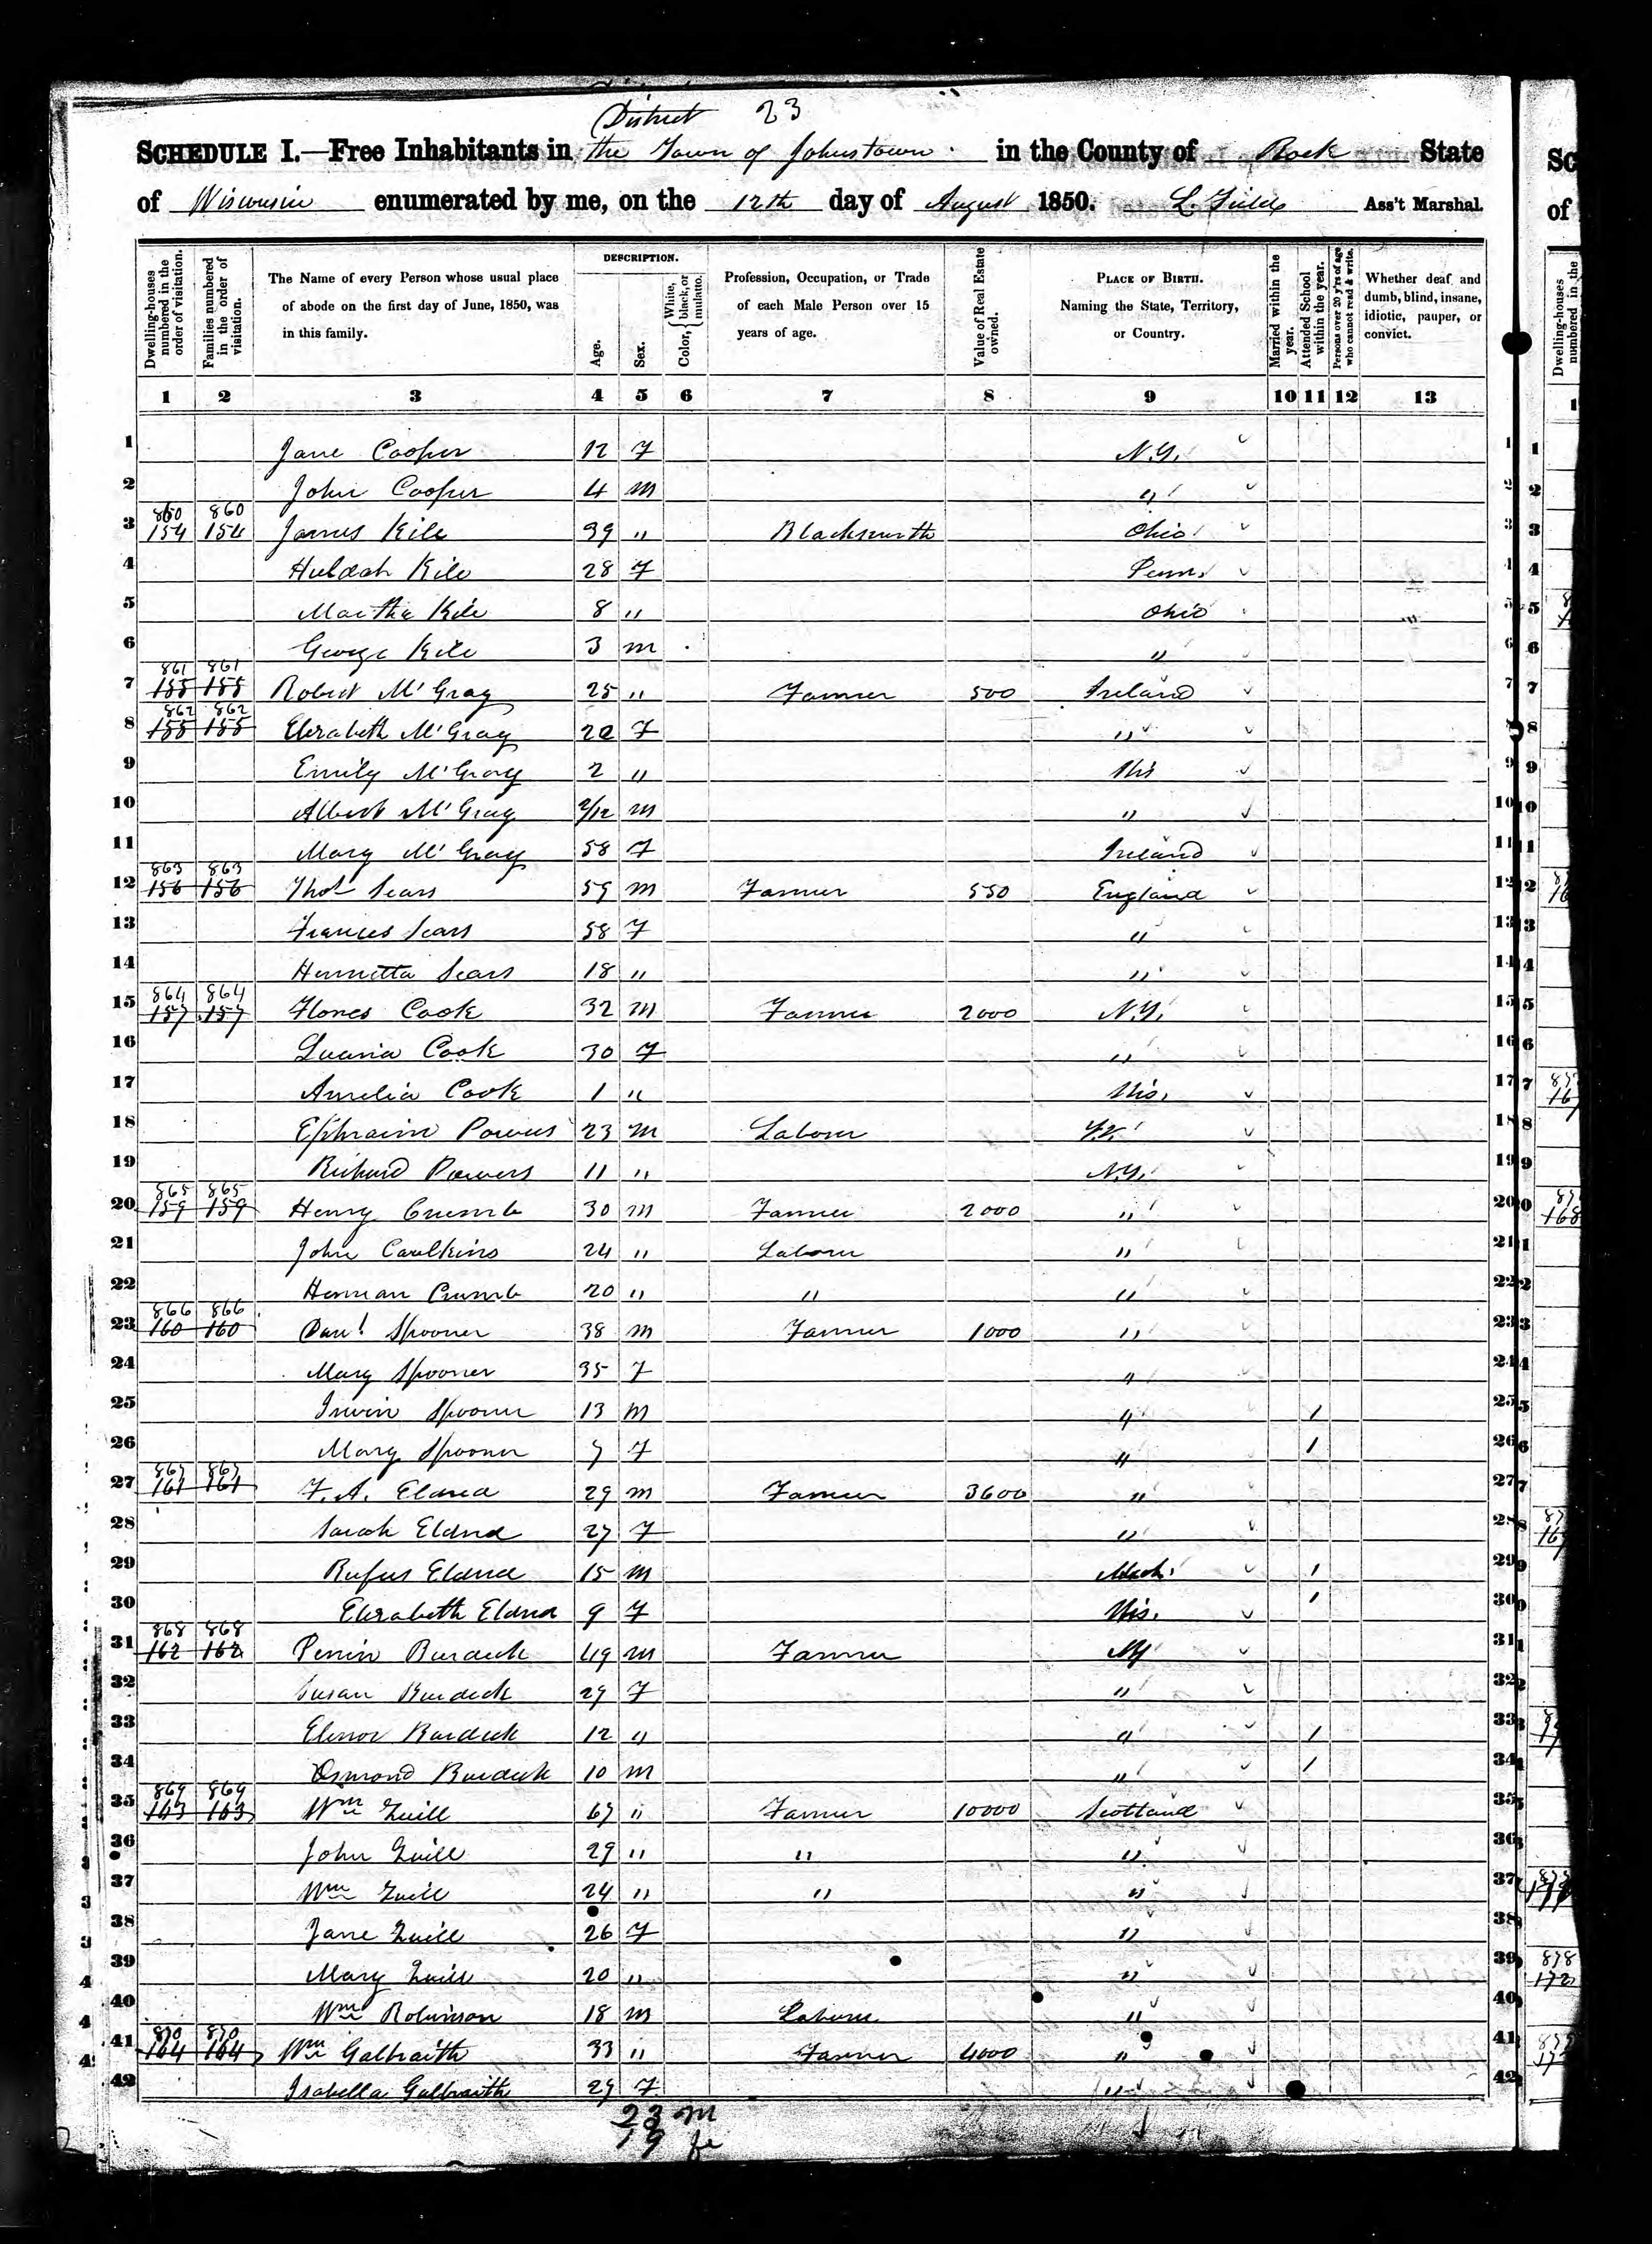 District 23
SCHEDULE I.—Free Inhabitants in the Town of Johnstown in the County of Rock State
of Wisconsin enumerated by me, on the 12th day of August 1850. L. Fields Ass't Marshal.
Dwelling-houses numbered in the order of visitation.
Families numbered in the order of visitation.
The Name of every Person whose usual place of abode on the first day of June, 1850, was in this family.
DESCRIPTION.
Age.
Sex.
Color, { White, black, or mulato.
Profession, Occupation, or Trade of each Male Person over 15 years of age.
Value of Real Estate owned.
PLACE OF BIRTH. Naming the State, Territory, or Country.
Married within the year.
Attended School within the year.
Persons over 20 y'rs of age who cannot read & write.
Whether deaf and dumb, blind, insane, idiotic, pauper, or convict.
1 2 3 4 5 6 7 8 9 10 11 12 13
1 Jane Cooper 12 F N.Y.
2 John Cooper 4 M "
860 860
3 154 154 James Kile 39 " Blacksmith Ohio
4 Huldah Kile 28 F Penn.
5 Martha Kile 8 " Ohio
6 George Kile 3 M "
861 861
7 155 155 Robert McGray 25 " Farmer 500 Ireland
862 862
8 155 155 Elizabeth McGray 22 F "
9 Emily McGray 2 " Wis
10 Albert McGray 2/12 M "
11 Mary McGray 58 F Ireland
863 863
12 156 156 Thos Sears 59 M Farmer 550 England
13 Frances Sears 58 F "
14 Henrietta Sears 18 " "
864 864
15 157 157 Cook 32 M Farmer 2000 N.Y.
16 Cook 30 F "
17 Amelia Cook 1 " Wis.
18 Ephraim Powers 23 M Laborer
19 Richard Powers 11 " N.Y.
865 865
20 159 159 Henry Crumb 30 M Farmer 2000 "
21 John Caulkins 24 " Laborer "
22 Herman Crumb 20 " " "
866 866
23 160 160 Danl Spooner 38 M Farmer 1000 "
24 Mary Spooner 35 F "
25 Irwin Spooner 13 M " 1
26 Mary Spooner 7 F " 1
867 867
27 161 161 F. A. Eldred 29 M Farmer 3600 "
28 Sarah Eldred 27 F "
29 Rufus Eldred 15 M 1
30 Elizabeth Eldred 9 F Wis. 1
868 868
31 162 162 Perrin Burdick 49 M Farmer NY
32 Susan Burdick 29 F "
33 Elenor Burdick 12 " " 1
34 Osmond Burdick 10 M " 1
869 869
35 163 163 Wm Zuill 67 " Farmer 10000 Scotland
36 John Zuill 29 " " "
37 Wm Zuill 24 " " "
38 Jane Zuill 26 F "
39 Mary Zuill 20 " "
40 Wm Robinson 18 M Laborer "
870 870
41 164 164 Wm Galbraith 33 " Farmer 4000 "
42 Isabella Galbraith 29 F "
23 M
19 fe